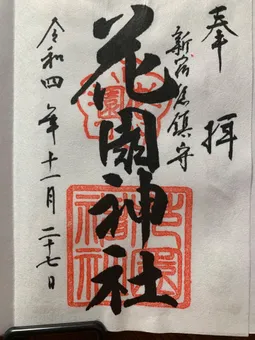 奉拝
新宿総鎮守
花園神社
令和四年十一月二十七日